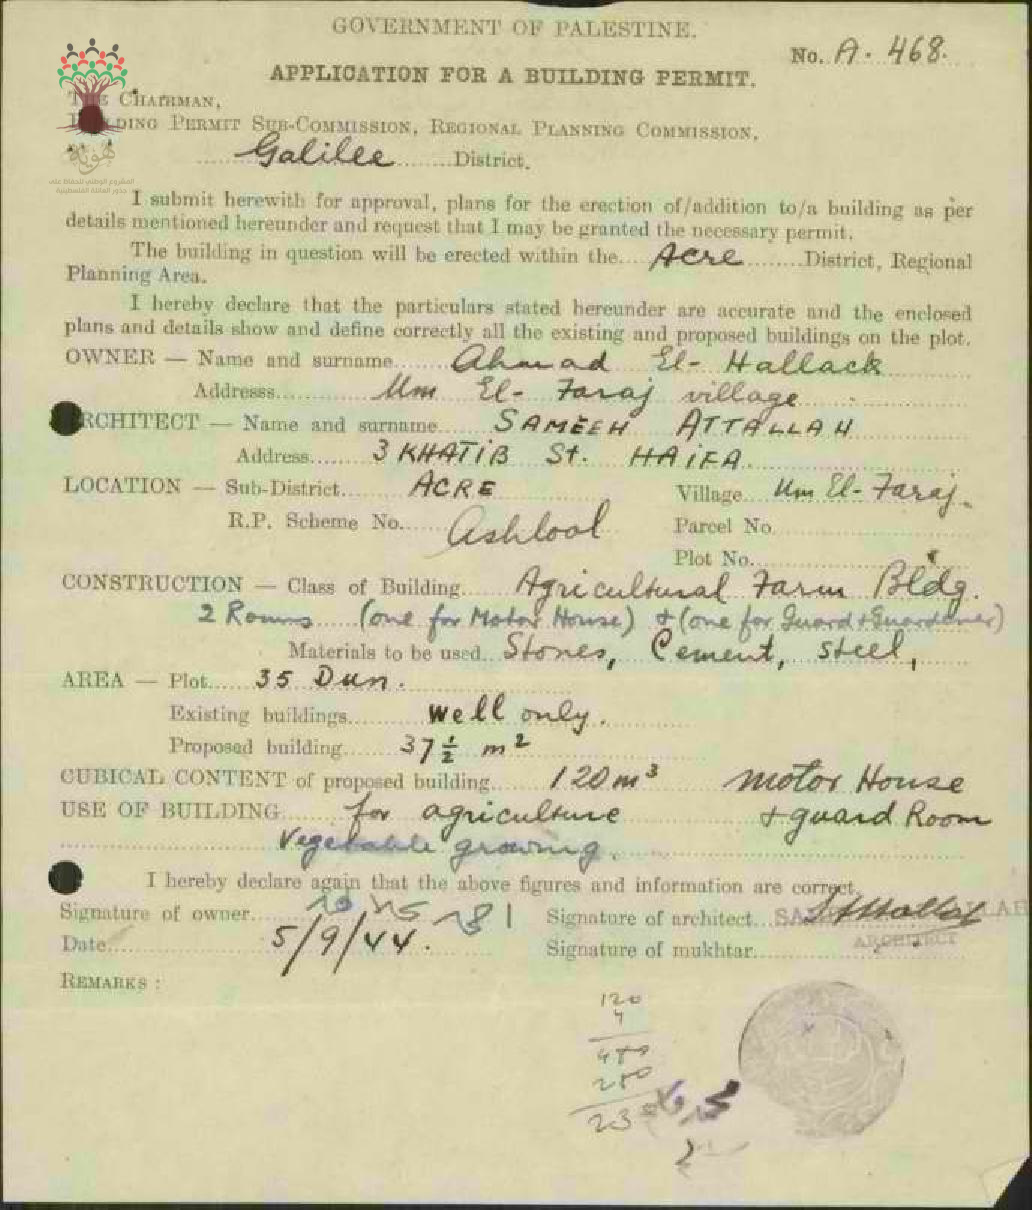 GOVERNMENT OF PALESTINE.
No. A. 468.
APPLICATION FOR A BUILDING PERMIT.
THE CHAIRMAN,
BUILDING PERMIT SUB-COMMISSION, REGIONAL PLANNING COMMISSION,
Galilee District.
هوية
المشروع الوطني للحفاظ على
جذور العائلة الفلسطينية
I submit herewith for approval, plans for the erection of/addition to/a building as per
details mentioned hereunder and request that I may be granted the necessary permit.
The building in question will be erected within the Acre District, Regional
Planning Area.
I hereby declare that the particulars stated hereunder are accurate and the enclosed
plans and details show and define correctly all the existing and proposed buildings on the plot.
OWNER — Name and surname Ahmad El- Hallack
Addresss Um El- Faraj village
ARCHITECT — Name and surname SAMEEH ATTALLAH
Address 3 KHATIB St. HAIFA
LOCATION — Sub-District ACRE Village Um El- Faraj.
R.P. Scheme No. Ashlool Parcel No.
Plot No.
CONSTRUCTION — Class of Building Agricultural Farm Bldg.
2 Rooms (one for Motor House) + (one for Guard + Guardener)
Materials to be used Stones, Cement, steel,
AREA — Plot 35 Dun.
Existing buildings well only.
Proposed building 37½ m²
CUBICAL CONTENT of proposed building 120 m³ motor House
USE OF BUILDING for agriculture + guard Room
Vegetable growing.
I hereby declare again that the above figures and information are correct.
Signature of owner Signature of architect
Date 5/9/44. ARCHITECT
Signature of mukhtar
REMARKS :
120
4
480